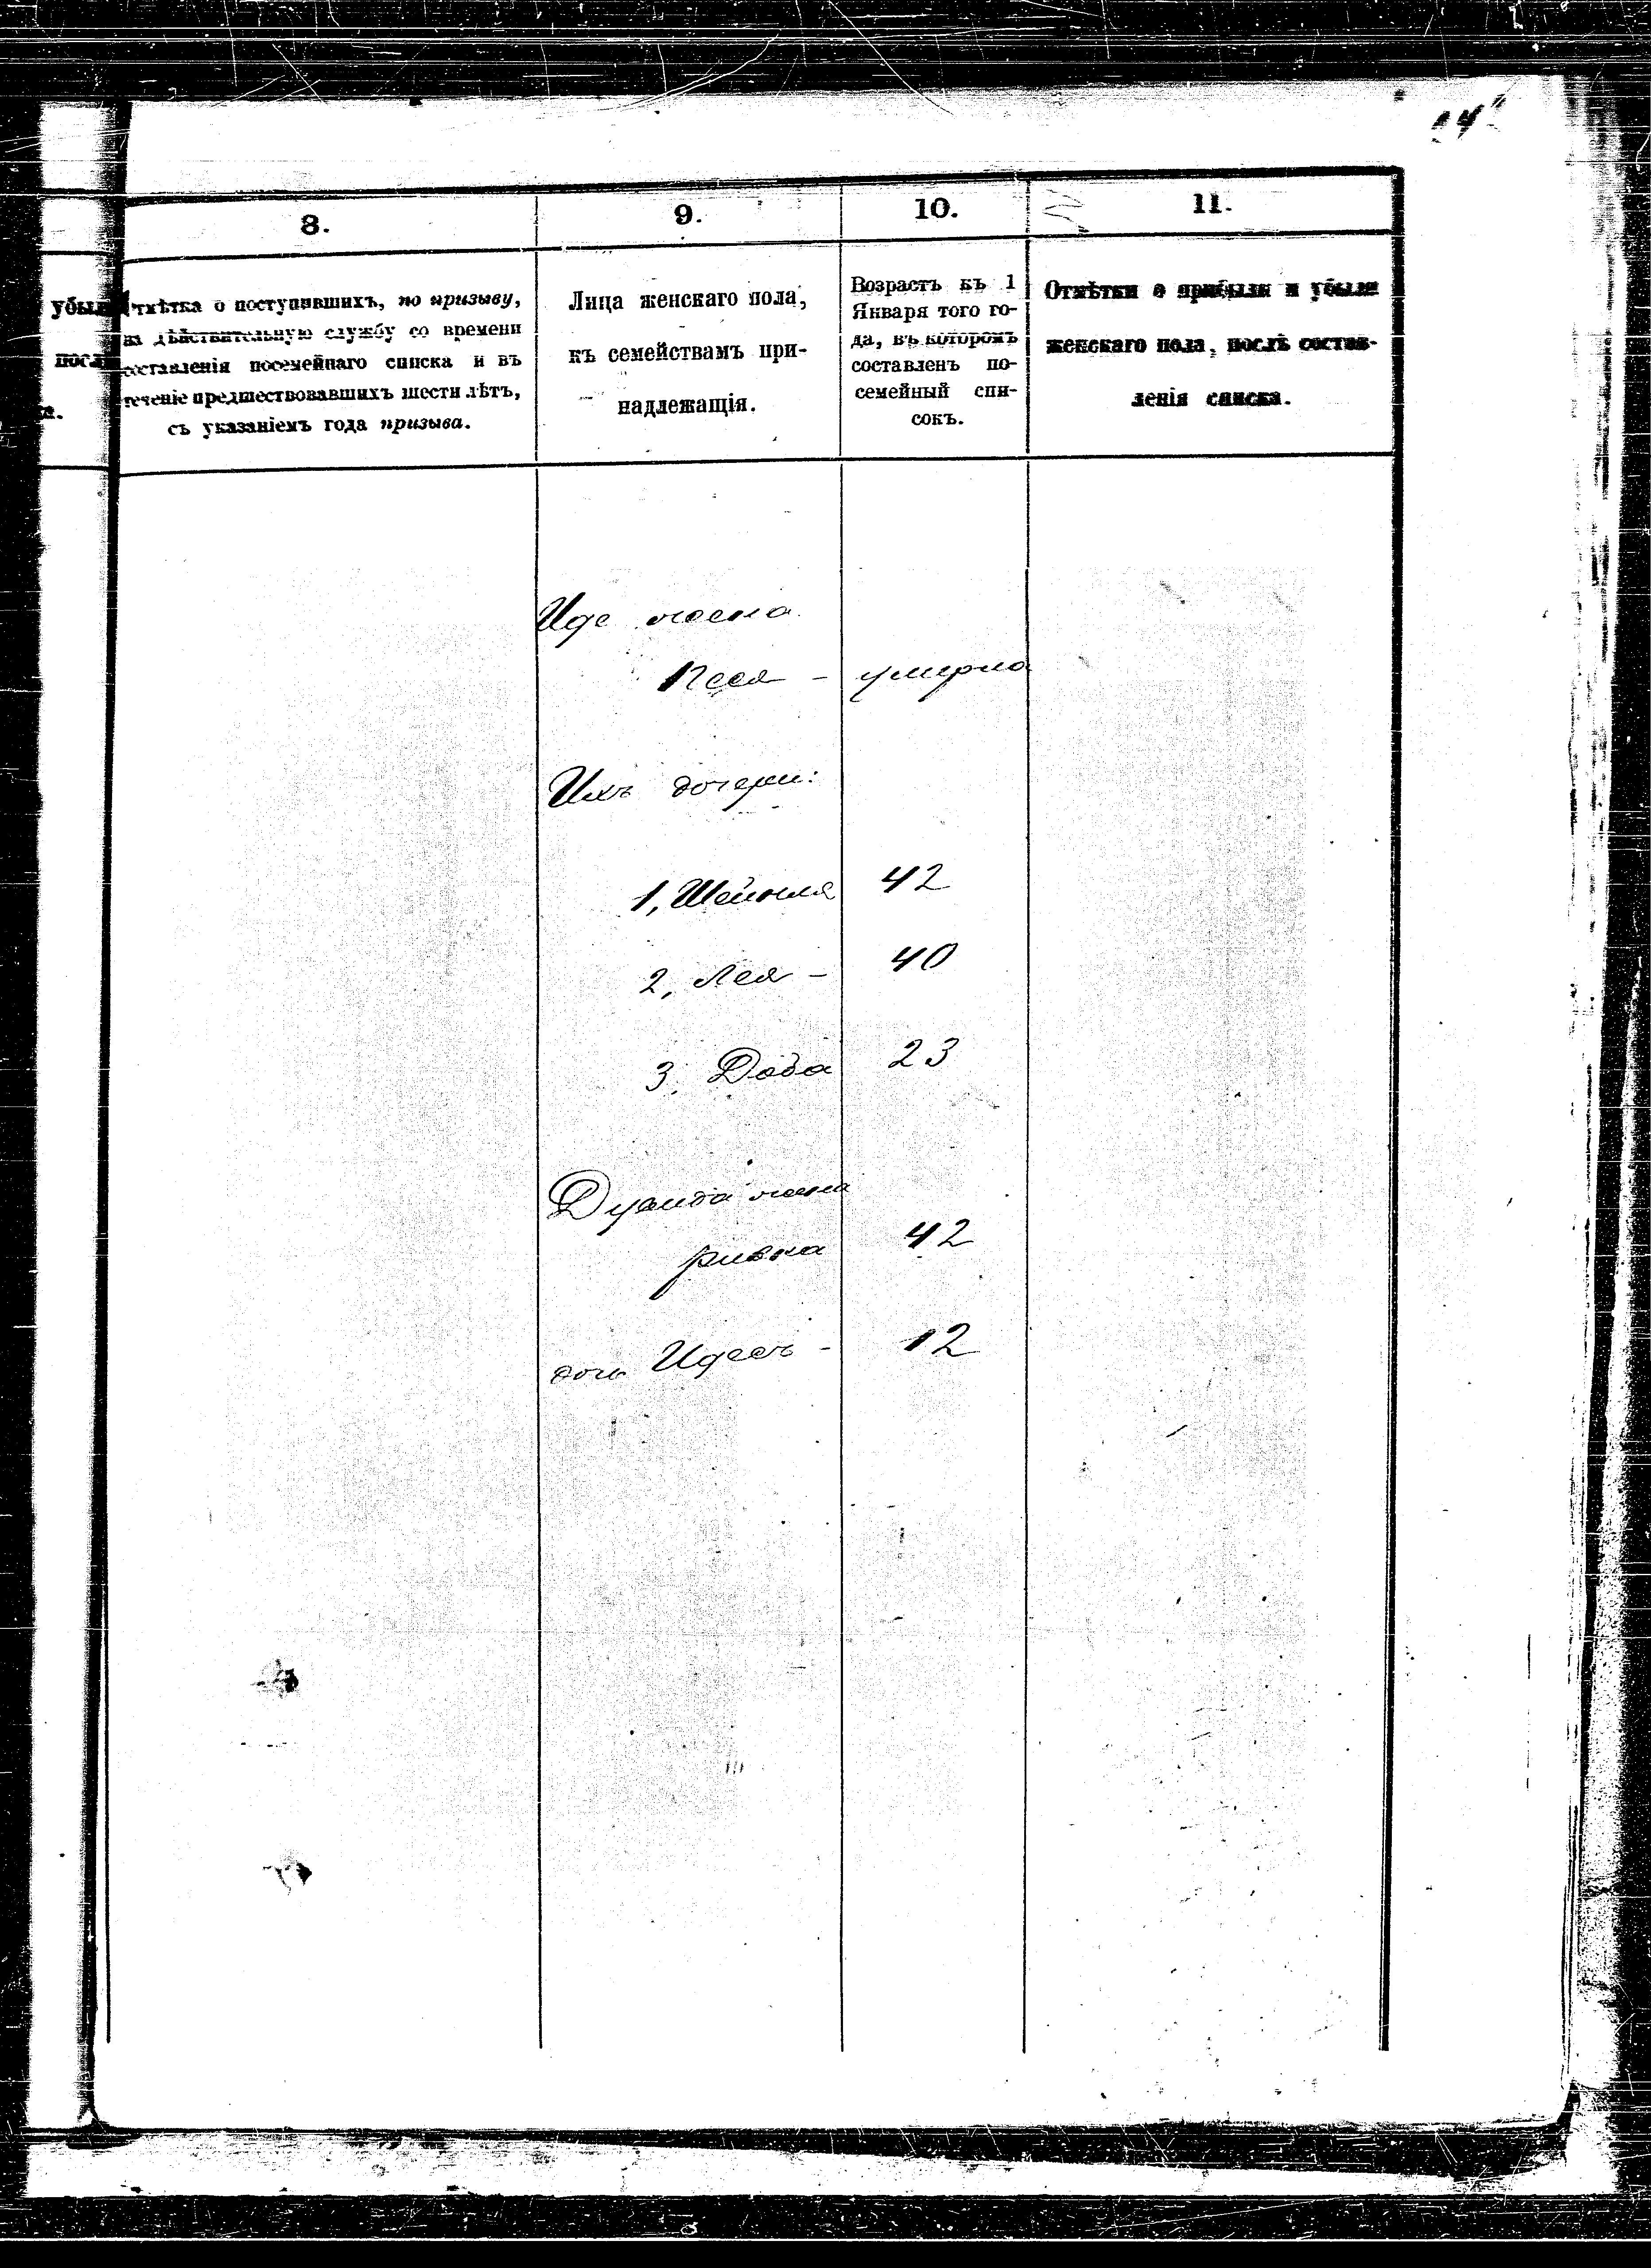 8.
9.
10.
11.
убыли
послѣ
а.
Отмѣтка о поступившихъ, по призыву,
на дѣйствительную службу со времени
составленія посемейнаго списка и въ
теченіе предшествовавшихъ шести лѣтъ,
съ указаніемъ года призыва.
Лица женскаго пола,
къ семействамъ при-
надлежащія.
Возрастъ къ 1
Января того го-
да, въ которомъ
составленъ по-
семейный спи-
сокъ.
Отмѣтки о прибыли и убыли
женскаго пола, послѣ состав-
ленія списка.
жена
Песя - умерла
Ихъ дочери:
1, 42
2, Лея - 40
3, Доба 23
жена
Ривка 42
дочь Идесъ - 12